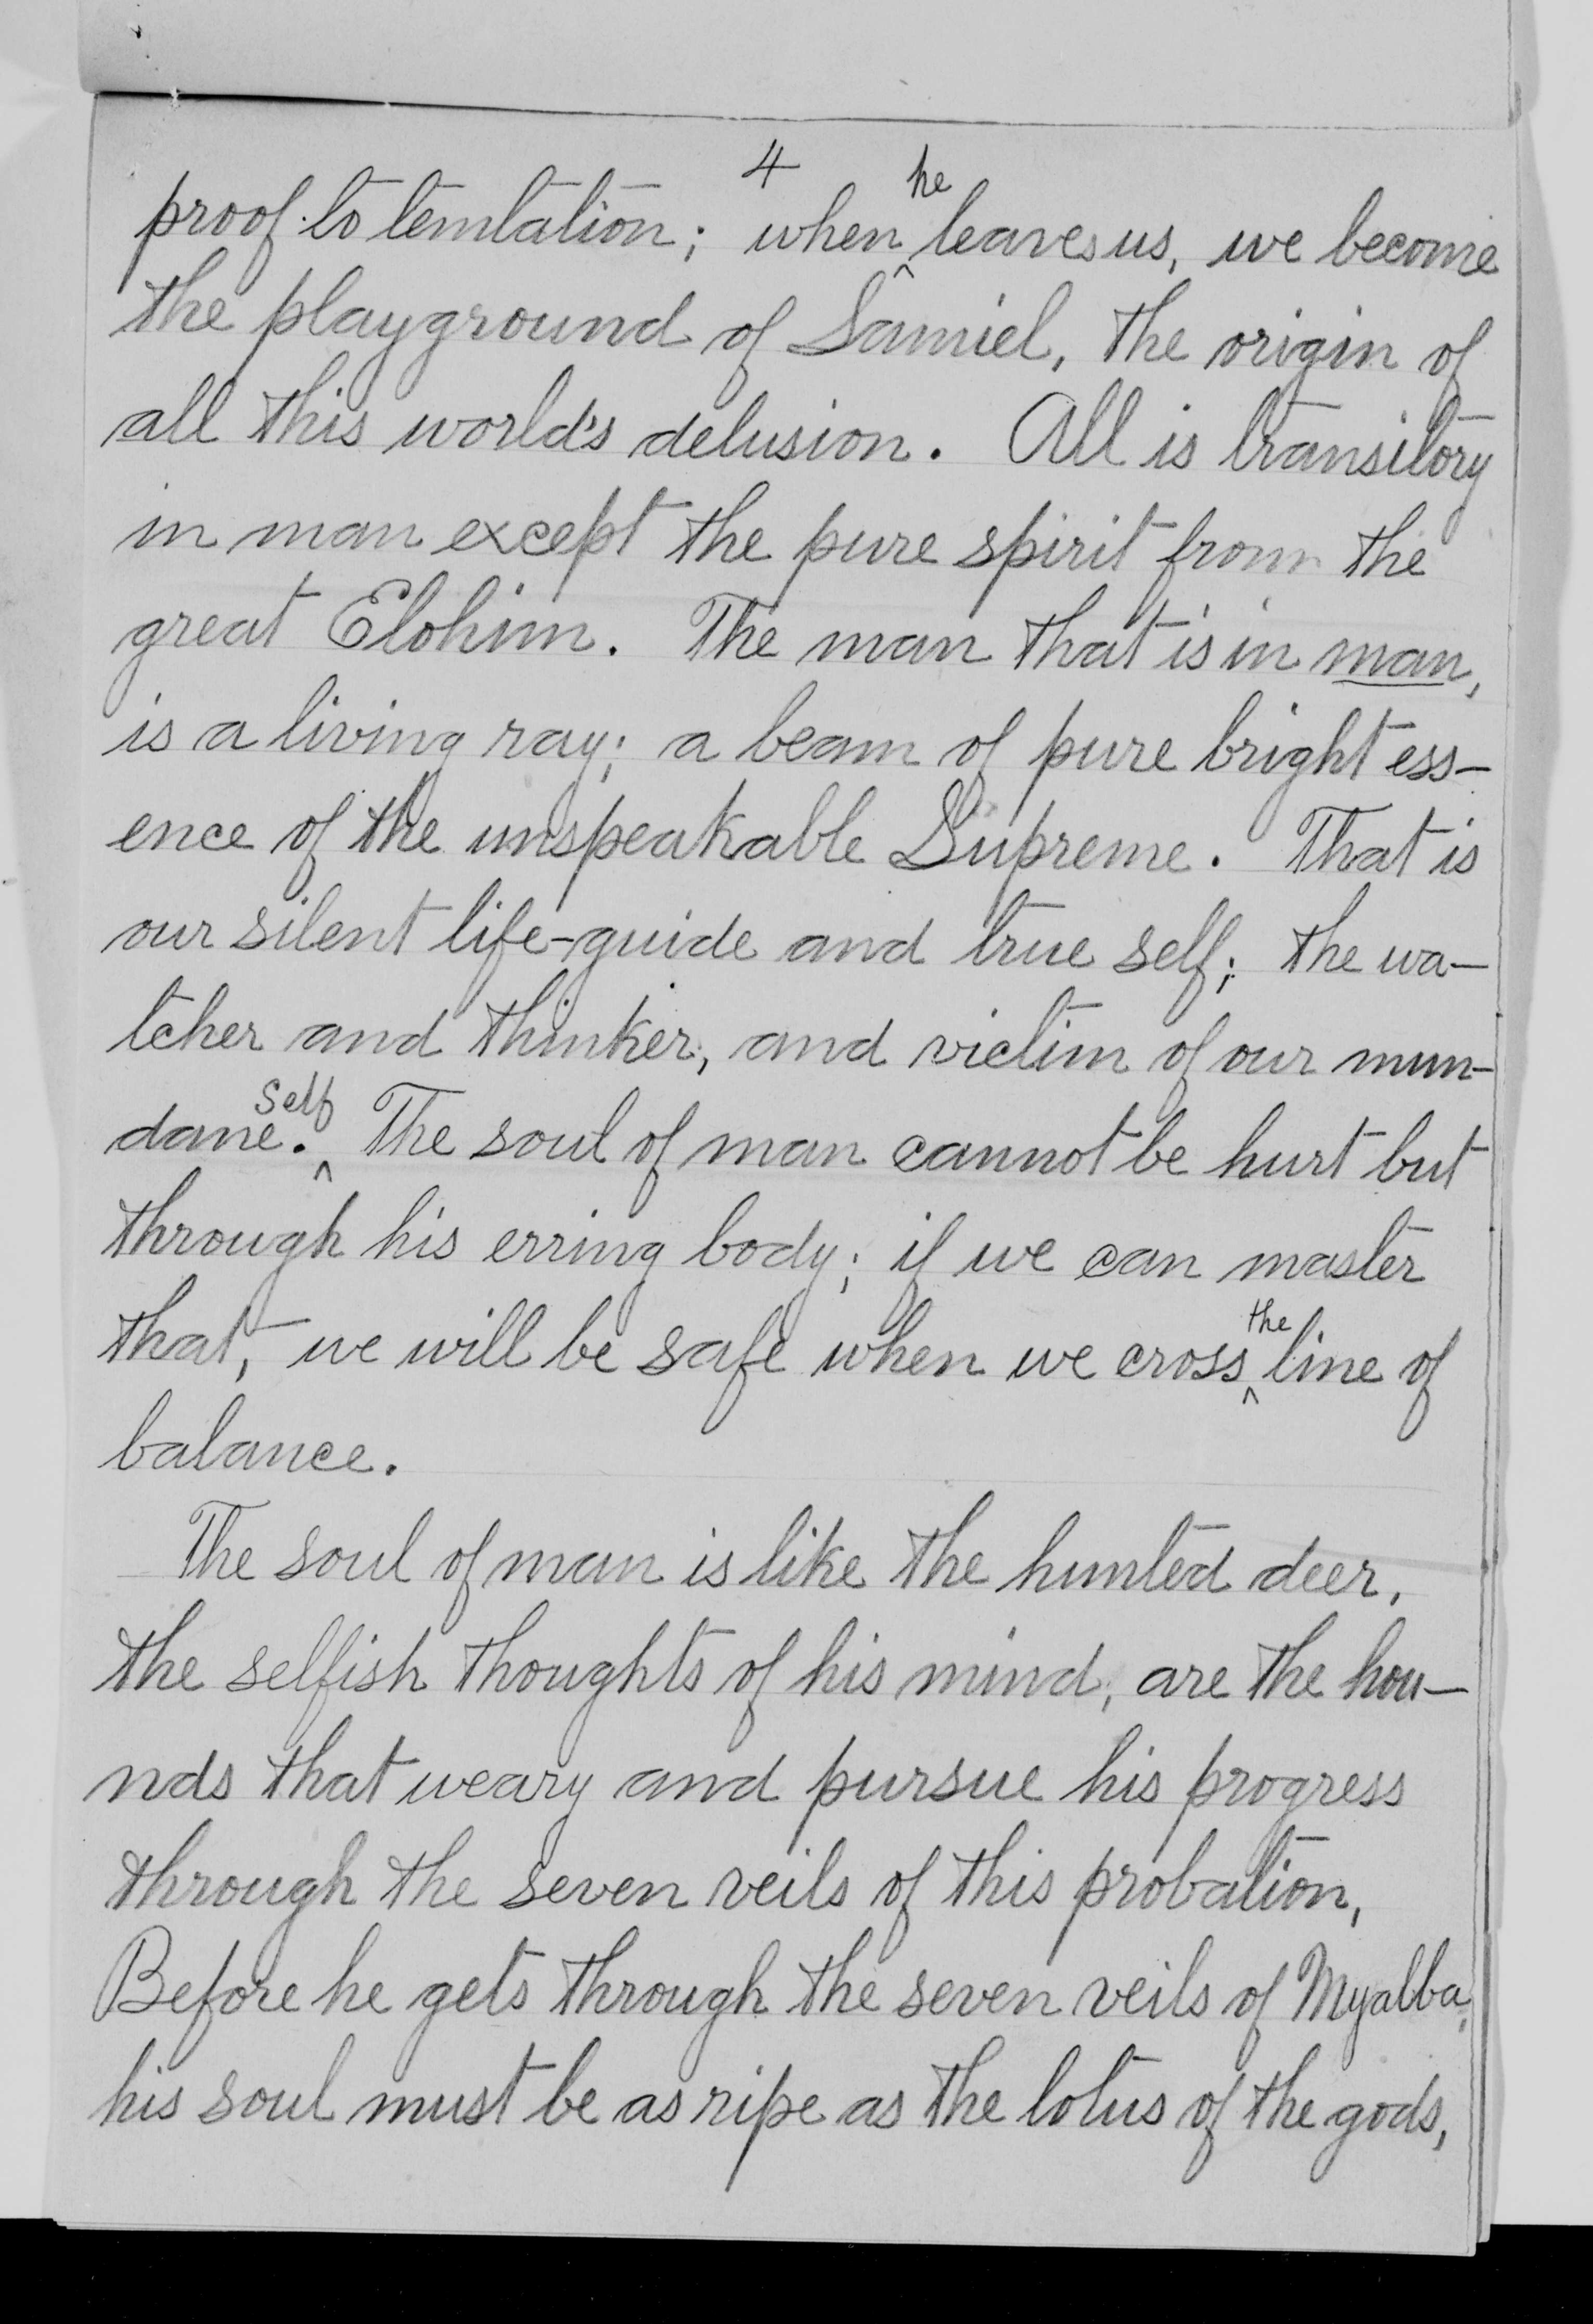 4
proof to temtation; when he leaves us, we become
the playground of Samiel, the origin of
all this world's delusion. All is transitory
in man except the pure spirit from the
great Elohim. The man that is in man,
is a living ray; a beam of pure bright ess-
ence of the unspeakable Supreme. That is
our silent life-guide and true self; the wa-
tcher and thinker, and victim of our mun-
dane self. The soul of man cannot be hurt but
through his erring body; if we can master
that, we will be safe when we cross the line of
balance.
The soul of man is like the hunted deer,
the selfish thoughts of his mind, are the hou-
nds that weary and pursue his progress
through the seven veils of this probation,
Before he gets through the seven veils of Myalba,
his soul must be as ripe as the lotus of the gods,